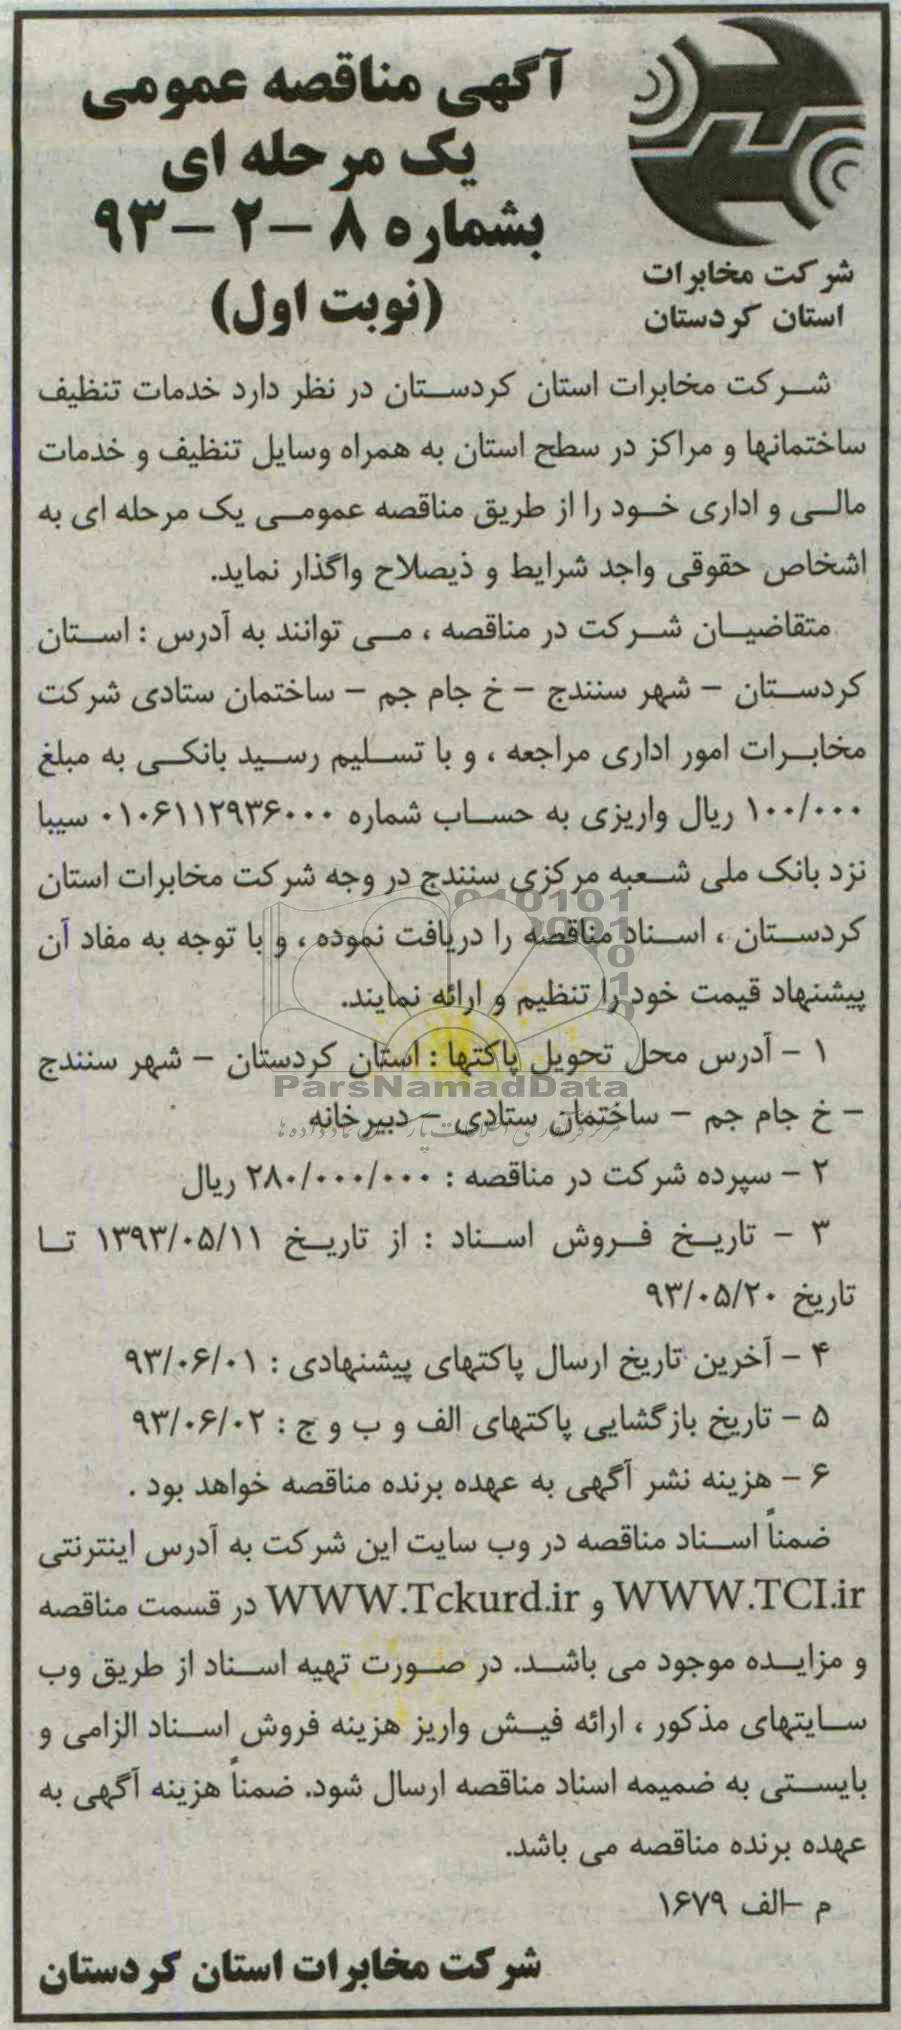 آگهی مناقصه عمومی
یک مرحله ای
بشماره ۸ -۲ -۹۳
(نوبت اول)
شرکت مخابرات
استان کردستان
شرکت مخابرات استان کردستان در نظر دارد خدمات تنظیف
ساختمانها و مراکز در سطح استان به همراه وسایل تنظیف و خدمات
مالی و اداری خود را از طریق مناقصه عمومی یک مرحله ای به
اشخاص حقوقی واجد شرایط و ذیصلاح واگذار نماید.
متقاضیان شرکت در مناقصه ، می توانند به آدرس : استان
کردستان – شهر سنندج – خ جام جم – ساختمان ستادی شرکت
مخابرات امور اداری مراجعه ، و با تسلیم رسید بانکی به مبلغ
۱۰۰/۰۰۰ ریال واریزی به حساب شماره ۰۱۰۶۱۱۲۹۳۶۰۰۰ سیبا
نزد بانک ملی شعبه مرکزی سنندج در وجه شرکت مخابرات استان
کردستان ، اسناد مناقصه را دریافت نموده ، و با توجه به مفاد آن
پیشنهاد قیمت خود را تنظیم و ارائه نمایند.
۱ – آدرس محل تحویل پاکتها : استان کردستان – شهر سنندج
– خ جام جم – ساختمان ستادی – دبیرخانه
ParsNamadData
۲ – سپرده شرکت در مناقصه : ۲۸۰/۰۰۰/۰۰۰ ریال
۳ – تاریخ فروش اسناد : از تاریخ ۱۳۹۳/۰۵/۱۱ تا
تاریخ ۹۳/۰۵/۲۰
۴ – آخرین تاریخ ارسال پاکتهای پیشنهادی : ۹۳/۰۶/۰۱
۵ – تاریخ بازگشایی پاکتهای الف و ب و ج : ۹۳/۰۶/۰۲
۶ – هزینه نشر آگهی به عهده برنده مناقصه خواهد بود .
ضمناً اسناد مناقصه در وب سایت این شرکت به آدرس اینترنتی
WWW.TCI.ir و WWW.Tckurd.ir در قسمت مناقصه
و مزایده موجود می باشد. در صورت تهیه اسناد از طریق وب
سایتهای مذکور ، ارائه فیش واریز هزینه فروش اسناد الزامی و
بایستی به ضمیمه اسناد مناقصه ارسال شود. ضمناً هزینه آگهی به
عهده برنده مناقصه می باشد.
م –الف ۱۶۷۹
شرکت مخابرات استان کردستان